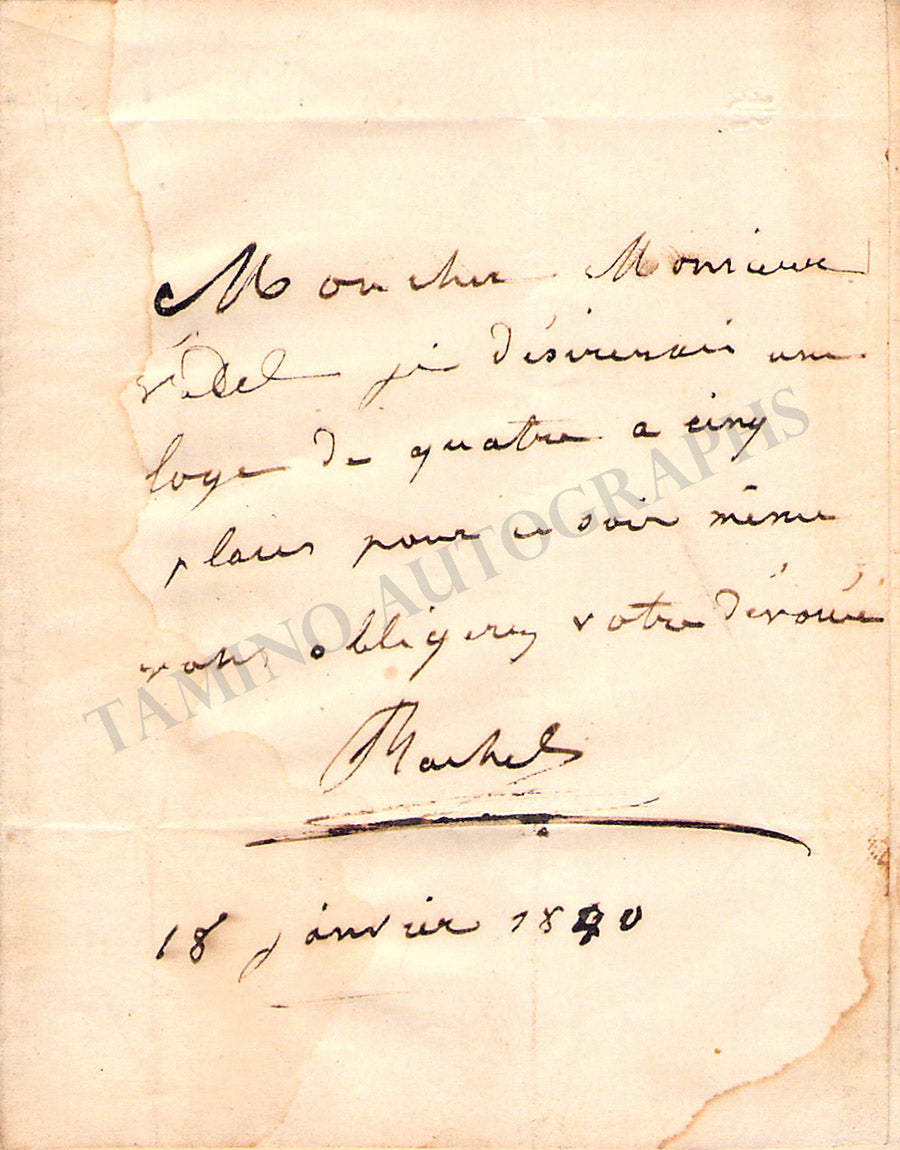 Mon cher Monsieur
védel je désirerais une
loge de quatre a cinq
places pour ce soir même
vous obligerez votre dévouée
Rachel
18 janvier 1840
TAMINO AUTOGRAPHS